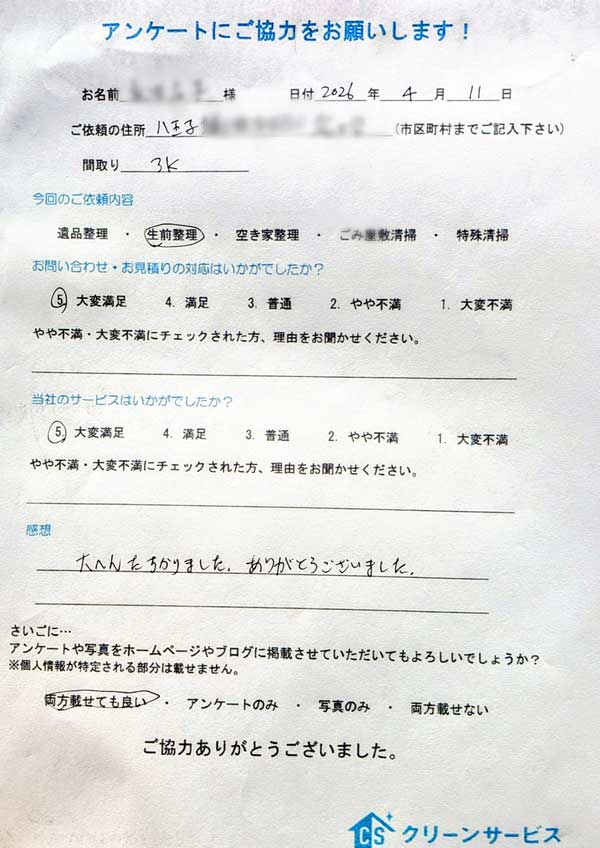 アンケートにご協力をお願いします！
お名前 様 日付 2026 年 4 月 11 日
ご依頼の住所 八王子 (市区町村までご記入下さい)
間取り 3K
今回のご依頼内容
遺品整理 ・ 生前整理 ・ 空き家整理 ・ ごみ屋敷清掃 ・ 特殊清掃
お問い合わせ・お見積りの対応はいかがでしたか？
5. 大変満足 4. 満足 3. 普通 2. やや不満 1. 大変不満
やや不満・大変不満にチェックされた方、理由をお聞かせください。
当社のサービスはいかがでしたか？
5. 大変満足 4. 満足 3. 普通 2. やや不満 1. 大変不満
やや不満・大変不満にチェックされた方、理由をお聞かせください。
感想
大へんたちかりました。ありがとうございました。
さいごに…
アンケートや写真をホームページやブログに掲載させていただいてもよろしいでしょうか？
※個人情報が特定される部分は載せません。
両方載せても良い ・ アンケートのみ ・ 写真のみ ・ 両方載せない
ご協力ありがとうございました。
CS クリーンサービス